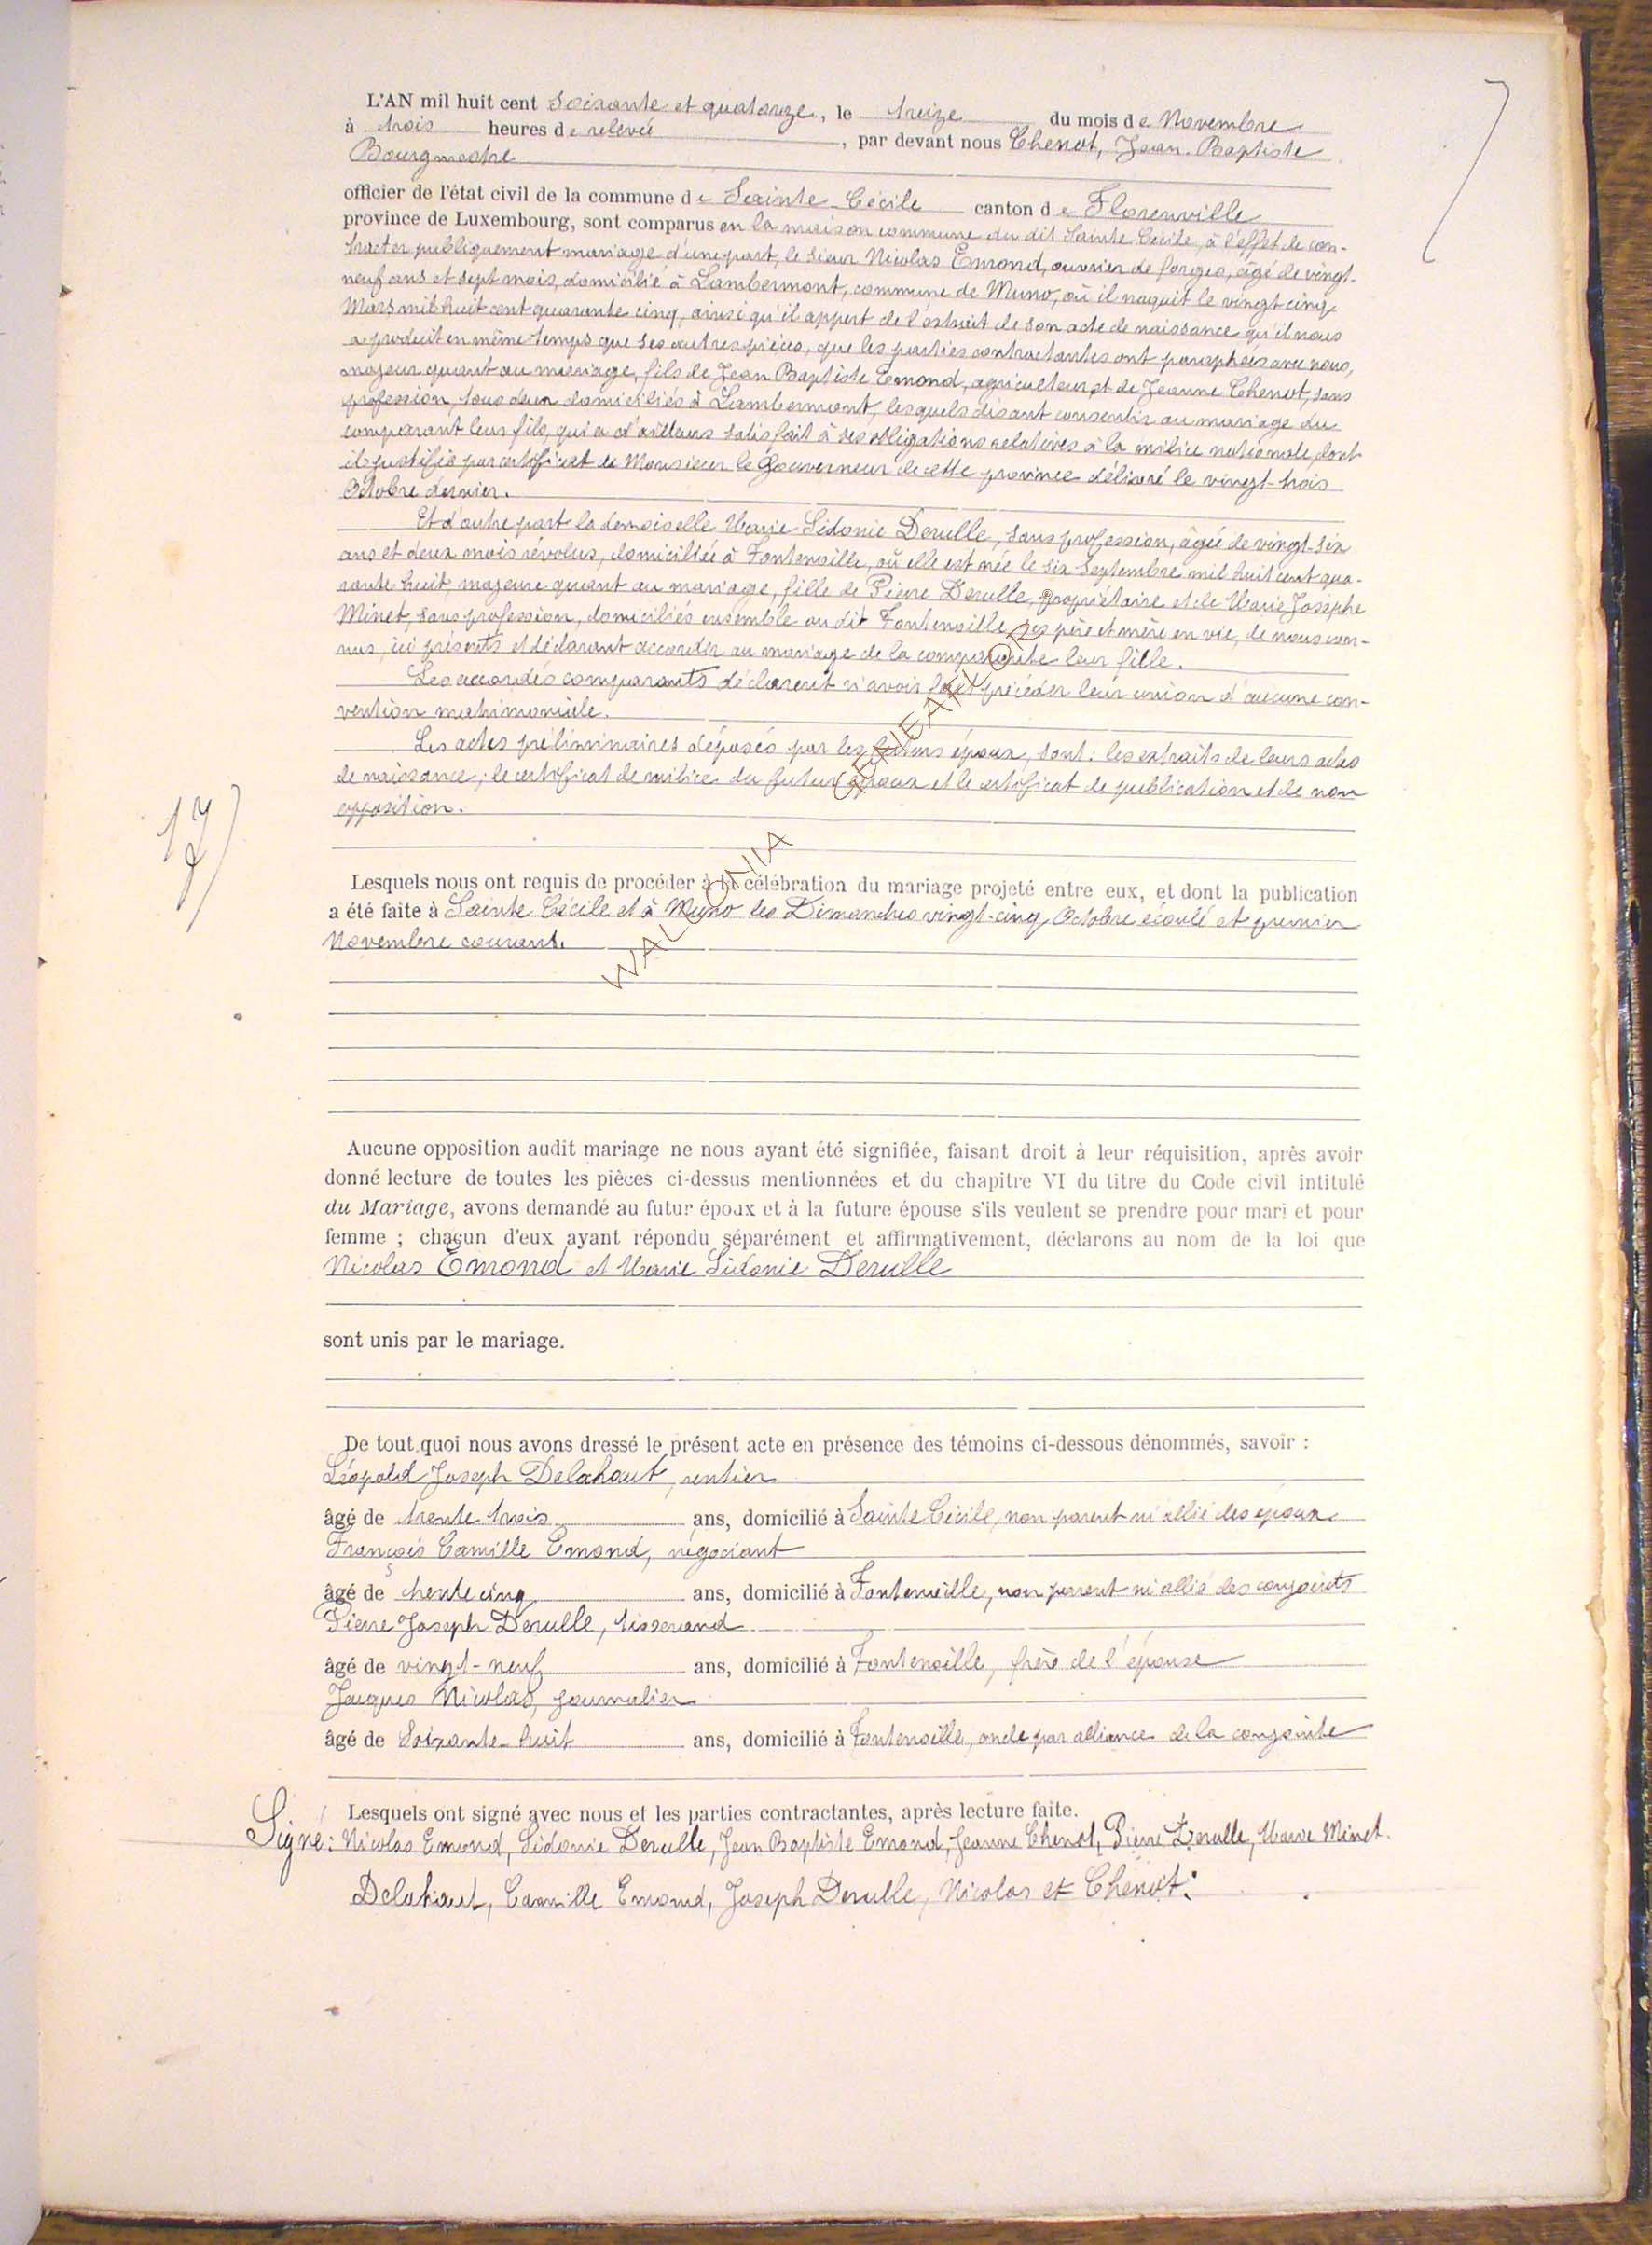 L'AN mil huit cent soixante et quatorze, le treize du mois de Novembre
à trois heures de relevée, par devant nous Chenot, Jean-Baptiste
Bourgmestre
officier de l'état civil de la commune de Sainte-Cécile canton de Florenville
province de Luxembourg, sont comparus en la maison commune du dit Sainte Cécile, à l'effet de con-
tracter publiquement mariage d'une part, le sieur Nicolas Emond, ouvrier de forges, âgé de vingt-
neuf ans et sept mois, domicilié à Lambermont, commune de Muno, où il naquit le vingt cinq
Mars mil huit cent quarante cinq, ainsi qu'il appert de l'extrait de son acte de naissance qu'il nous
a produit en même temps que ses autres pièces, que les parties contractantes ont paraphées avec nous,
majeur quant au mariage, fils de Jean Baptiste Emond, agriculteur et de Jeanne Chenot, sans
profession, tous deux domiciliés à Lambermont, lesquels disant consentir au mariage du
comparant leur fils, qui a d'ailleurs satisfait à ses obligations relatives à la milice nationale, dont
il justifie par certificat de Monsieur le Gouverneur de cette province délivré le vingt-trois
Octobre dernier.
Et d'autre part la demoiselle Marie Sidonie Derulle, sans profession, âgée de vingt-six
ans et deux mois révolus, domiciliée à Fontenoille, où elle est née le six Septembre mil huit cent qua-
rante huit, majeure quant au mariage, fille de Pierre Derulle, propriétaire et de Marie Josèphe
Minet, sans profession, domiciliés ensemble au dit Fontenoille, ses père et mère en vie, de nous con-
nus, ici présents et déclarant accorder au mariage de la comparante leur fille.
Les accordés comparants déclarent n'avoir fait précéder leur union d'aucune con-
vention matrimoniale.
Les actes préliminaires déposés par les futurs époux, sont: les extraits de leurs actes
de naissance; le certificat de milice du futur époux et le certificat de publication et de non
opposition.
17
Lesquels nous ont requis de procéder à la célébration du mariage projeté entre eux, et dont la publication
a été faite à Sainte Cécile et à Muno les Dimanches vingt-cinq Octobre écoulé et premier
Novembre courant.
WALLONIA GENEAFLOR
Aucune opposition audit mariage ne nous ayant été signifiée, faisant droit à leur réquisition, après avoir
donné lecture de toutes les pièces ci-dessus mentionnées et du chapitre VI du titre du Code civil intitulé
du Mariage, avons demandé au futur époux et à la future épouse s'ils veulent se prendre pour mari et pour
femme ; chacun d'eux ayant répondu séparément et affirmativement, déclarons au nom de la loi que
Nicolas Emond et Marie Sidonie Derulle
sont unis par le mariage.
De tout quoi nous avons dressé le présent acte en présence des témoins ci-dessous dénommés, savoir :
Léopold Joseph Delahaut, rentier
âgé de trente trois ans, domicilié à Sainte Cécile, non parent ni allié des époux
François Camille Emond, négociant
âgé de trente cinq ans, domicilié à Fontenoille, non parent ni allié des conjoints
Pierre Joseph Derulle, tisserand
âgé de vingt-neuf ans, domicilié à Fontenoille, frère de l'épouse
Jacques Nicolas, journalier
âgé de soixante-huit ans, domicilié à Fontenoille, oncle par alliance de la conjointe
Lesquels ont signé avec nous et les parties contractantes, après lecture faite.
Signé: Nicolas Emond, Sidonie Derulle, Jean Baptiste Emond, Jeanne Chenot, Pierre Derulle, Marie Minet.
Delahaut, Camille Emond, Joseph Derulle, Nicolas et Chenot.